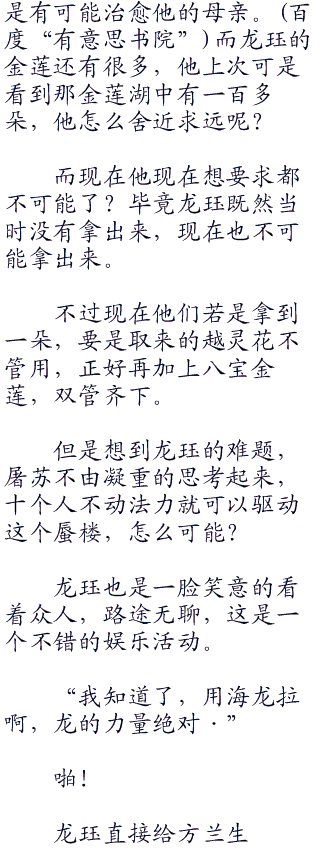 是有可能治愈他的母亲。(百
度“有意思书院”)而龙珏的
金莲还有很多，他上次可是
看到那金莲湖中有一百多
朵，他怎么舍近求远呢？
而现在他现在想要求都
不可能了？毕竟龙珏既然当
时没有拿出来，现在也不可
能拿出来。
不过现在他们若是拿到
一朵，要是取来的越灵花不
管用，正好再加上八宝金
莲，双管齐下。
但是想到龙珏的难题，
屠苏不由凝重的思考起来，
十个人不动法力就可以驱动
这个蜃楼，怎么可能？
龙珏也是一脸笑意的看
着众人，路途无聊，这是一
个不错的娱乐活动。
“我知道了，用海龙拉
啊，龙的力量绝对·”
啪！
龙珏直接给方兰生